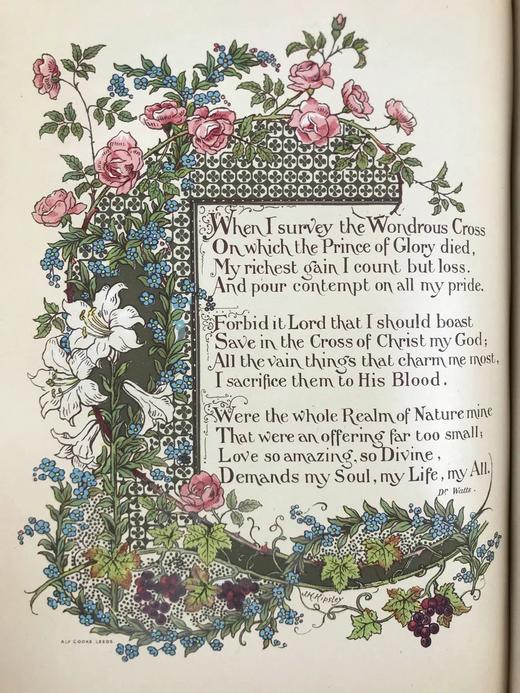 When I survey the Wondrous Cross
On which the Prince of Glory died,
My richest gain I count but loss.
And pour contempt on all my pride.
Forbid it Lord that I should boast
Save in the Cross of Christ my God;
All the vain things that charm me most,
I sacrifice them to His Blood.
Were the whole Realm of Nature mine
That were an offering far too small;
Love so amazing, so Divine,
Demands my Soul, my Life, my All.
Dr Watts.
ALF COOKE. LEEDS.